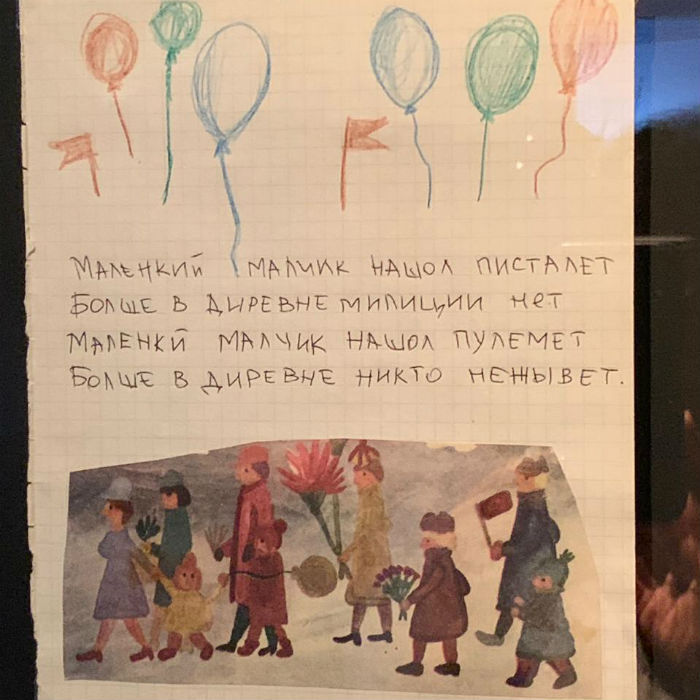 МАЛЕНКИЙ МАЛЧИК НАШОЛ ПИСТАЛЕТ
БОЛШЕ В ДИРЕВНЕ МИЛИЦИИ НЕТ
МАЛЕНКЙ МАЛЧИК НАШОЛ ПУЛЕМЕТ
БОЛШЕ В ДИРЕВНЕ НИКТО НЕЖЫВЕТ.